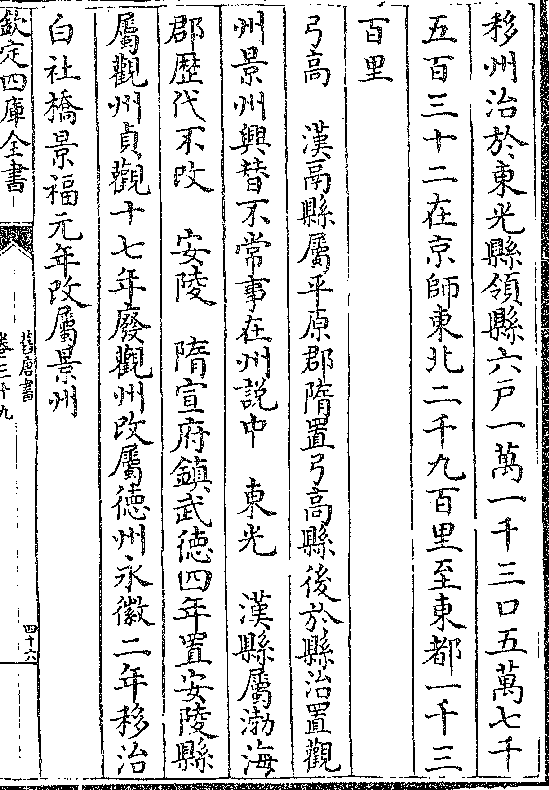 移州治於東光縣領縣六戶一萬一千三口五萬七千
五百三十二在京師東北二千九百里至東都一千三
百里
弓高　漢鬲縣屬平原郡隋置弓高縣後於縣治置觀
州景州興替不常事在州説中　東光　漢縣屬渤海
郡歴代不改　安陵　隋宣府鎮武徳四年置安陵縣
屬觀州貞觀十七年廢觀州改屬徳州永徽二年移治
白社橋景福元年改屬景州
欽定四庫全書
舊唐書
卷三十九
四十六